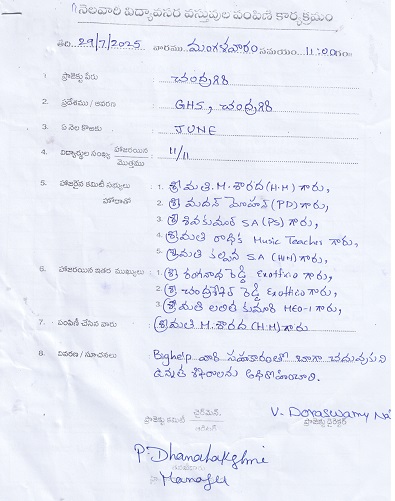 నెలవారి విద్యావసర వస్తువుల పంపిణి కార్యక్రమం
తేది 29/7/2025 వారము మంగళవారం సమయం 11:00గం
1. ప్రాజెక్టు పేరు : చంద్రగిరి
2. ప్రదేశము / ఆవరణ : GHS, చంద్రగిరి
3. ఏ నెల కొఱకు : JUNE
4. విద్యార్థుల సంఖ్య హాజరయిన / మొత్తము : 11/11
5. హాజరైన కమిటి సభ్యులు : 1. శ్రీమతి. M. శారద (H.M) గారు,
హోదాతో 2. శ్రీ మదన్ మోహన్ (PD) గారు,
3. శ్రీ శివకుమార్ SA (PS) గారు,
4. శ్రీమతి రాధిక Music Teacher గారు,
5. శ్రీమతి కల్పన SA (Hin) గారు,
6. హాజరయిన ఇతర ముఖ్యులు : 1. శ్రీ రంగనాథ రెడ్డి Exoffico గారు,
2. శ్రీ చంద్రశేఖర్ రెడ్డి Exoffico గారు,
3. శ్రీమతి లలిత కుమారి MEO-1 గారు,
7. పంపిణీ చేసిన వారు : శ్రీమతి M. శారద (H.M) గారు
8. వివరణ / సూచనలు : Bighelp వారి సహకారంతో బాగా చదువుకుని
ఉన్నత శిఖరాలను అధిరోహించాలి.
ప్రాజెక్టు కమిటి ఛైర్మెన్. V. Doraswamy Nai
ప్రాజెక్టు డైరెక్టర్
P. Dhanalakshmi
Manager